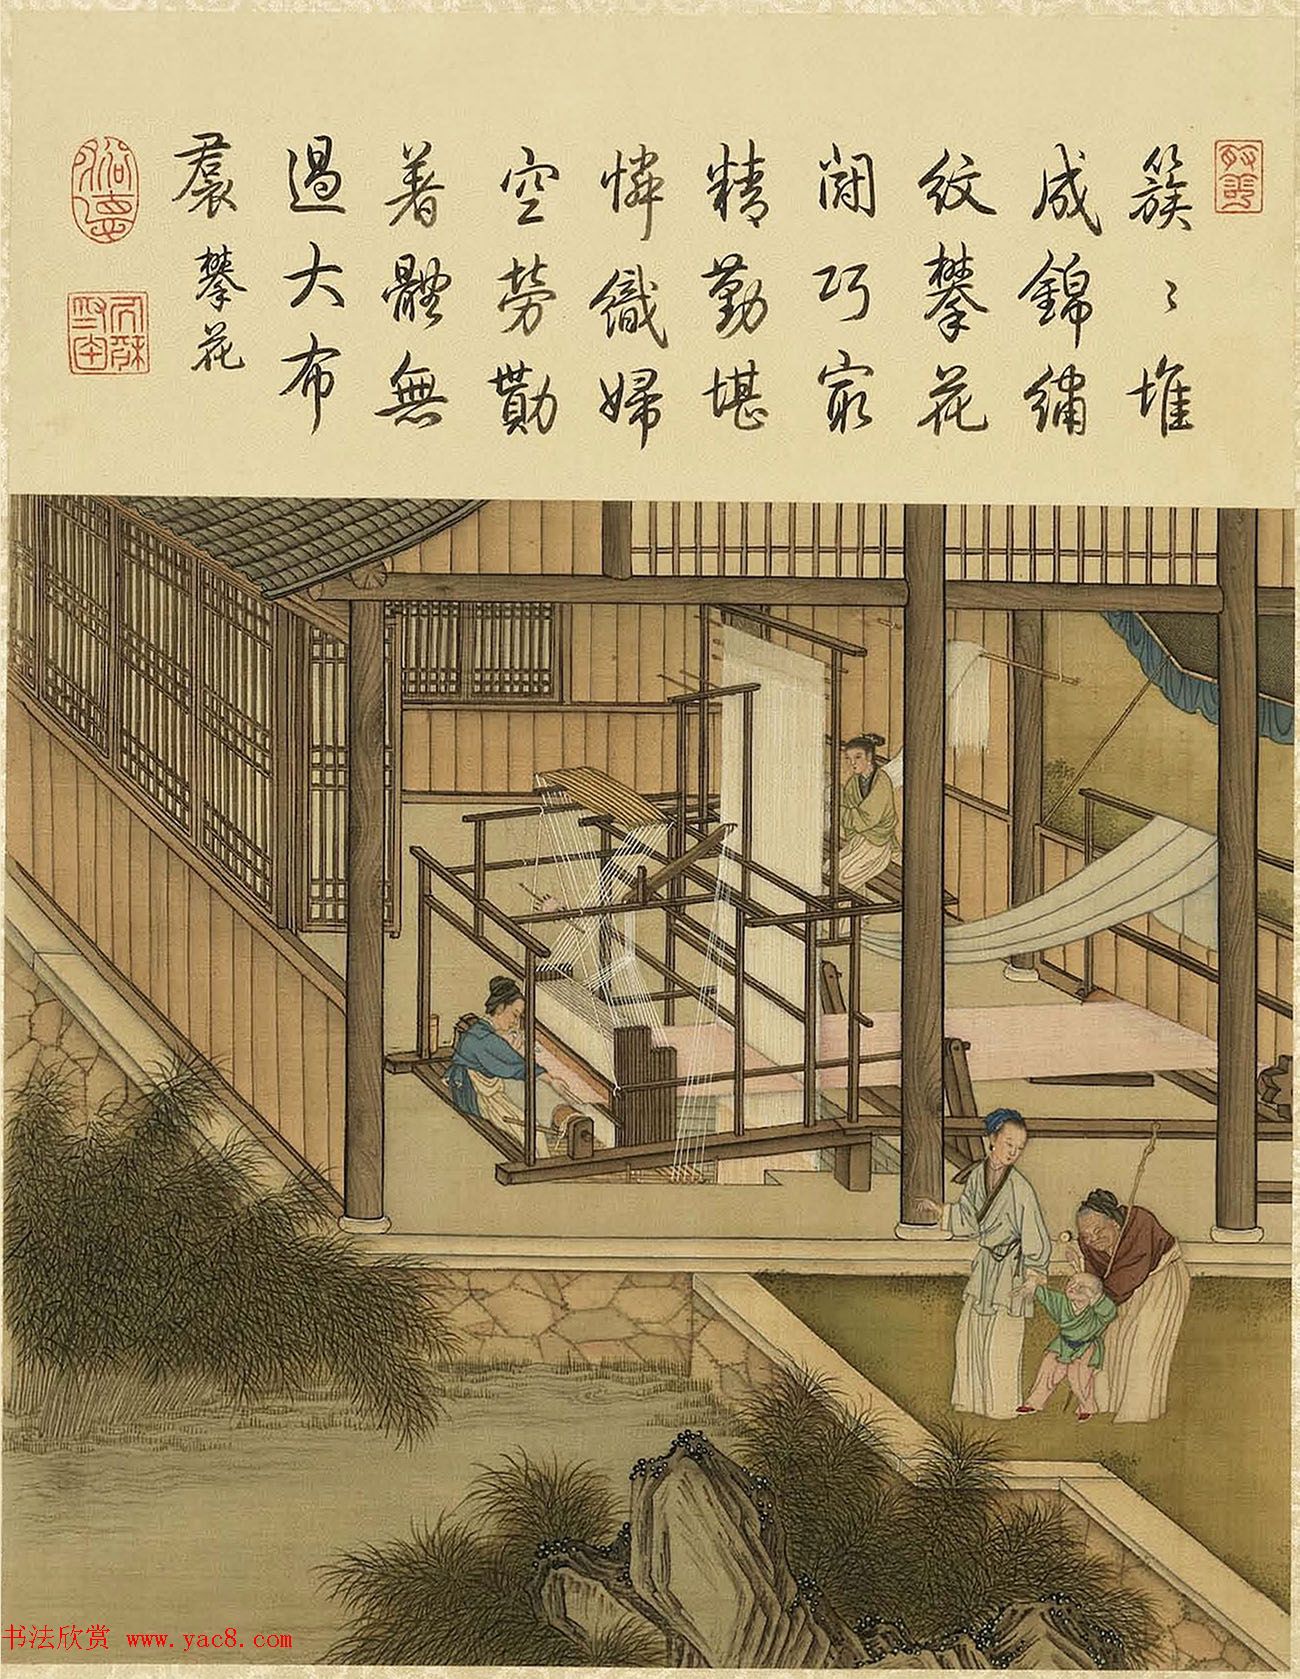 簇〻堆
成錦繡
紋攀花
閗巧冣
精勤堪
憐織婦
空勞勩
着體無
過大布
裠
攀花
書法欣赏 www.yac8.com